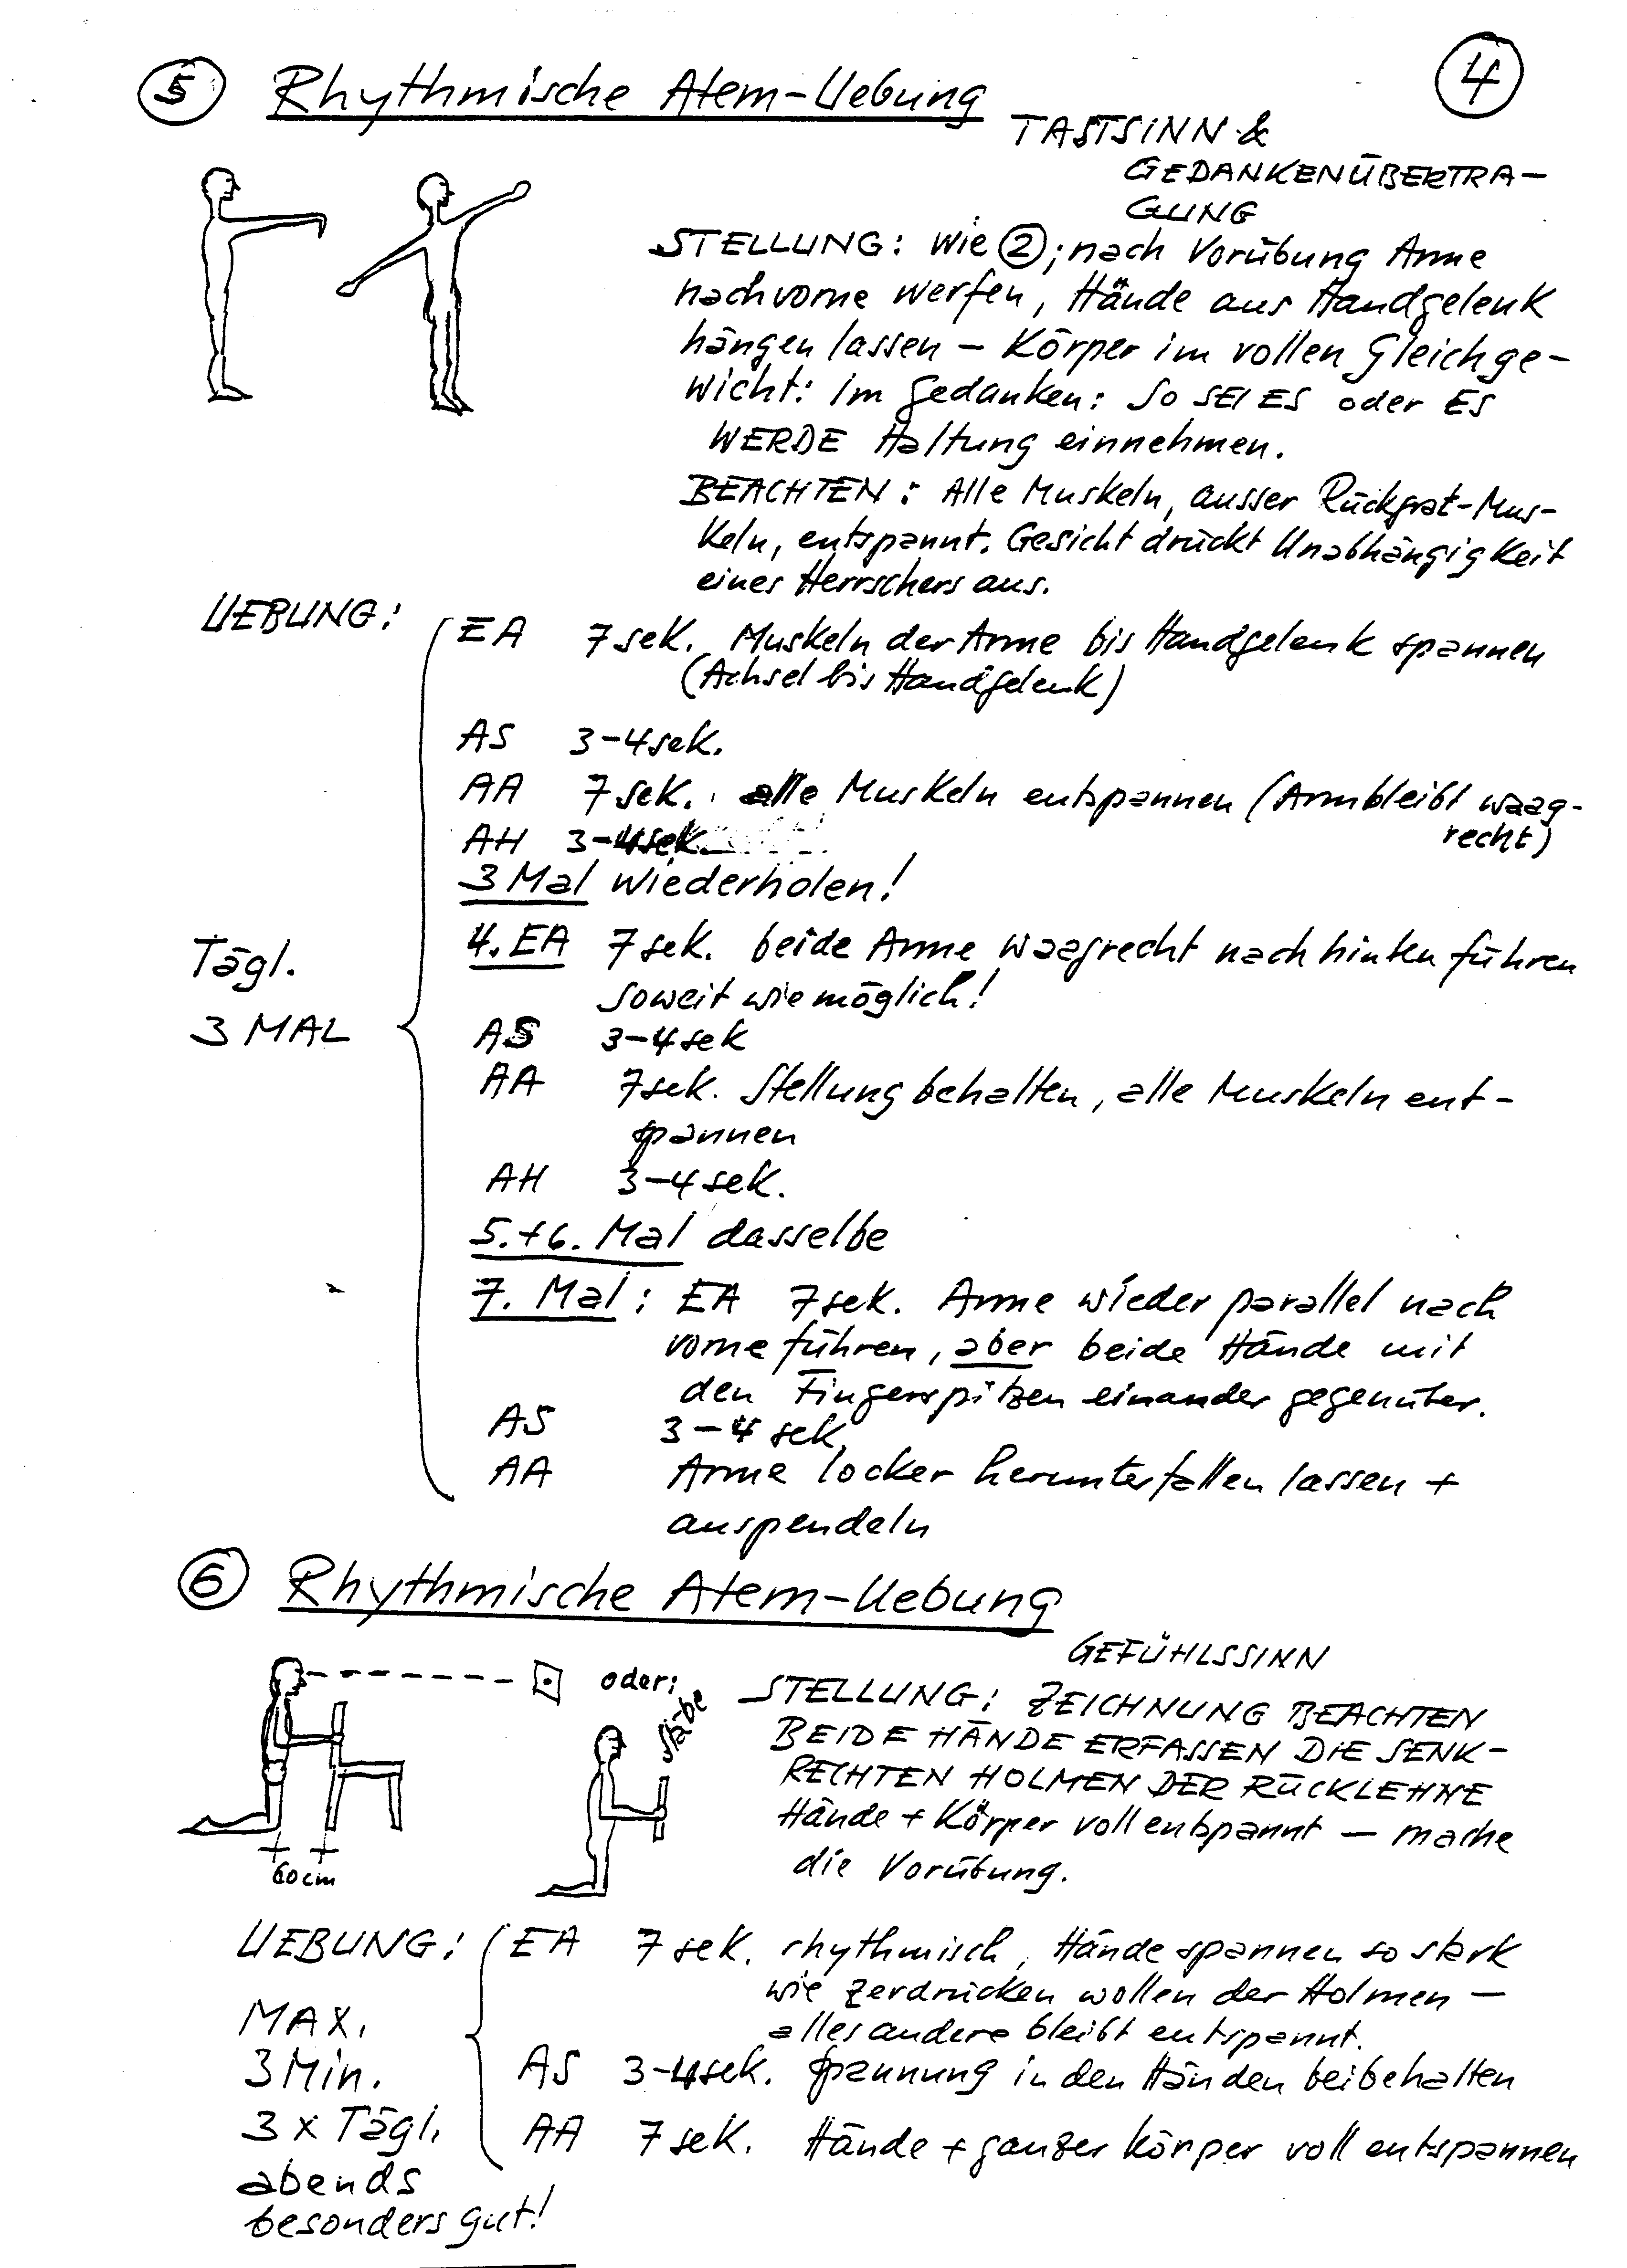 ⑤ Rhythmische Atem-Uebung
④
TASTSINN &
GEDANKENÜBERTRA-
GUNG
STELLUNG: Wie ②; nach Vorübung Arme
nach vorne werfen, Hände aus Handgelenk
hängen lassen – Körper im vollen Gleichge-
wicht: im Gedanken: SO SEI ES oder ES
WERDE Haltung einnehmen.
BEACHTEN: Alle Muskeln, ausser Rückgrat-Mus-
keln, entspannt. Gesicht drückt Unabhängigkeit
eines Herrschers aus.
UEBUNG:
EA 7 sek. Muskeln der Arme bis Handgelenk spannen
(Achsel bis Handgelenk)
AS 3-4 sek.
AA 7 sek. alle Muskeln entspannen (Arm bleibt waag-
recht)
AH 3-4 sek.
3 Mal wiederholen!
Tägl.
3 MAL
4. EA 7 sek. beide Arme waagrecht nach hinten führen
soweit wie möglich!
AS 3-4 sek
AA 7 sek. Stellung behalten, alle Muskeln ent-
spannen
AH 3-4 sek.
5.+6. Mal dasselbe
7. Mal: EA 7 sek. Arme wieder parallel nach
vorne führen, aber beide Hände mit
den Fingerspitzen einander gegenüber.
AS 3-4 sek.
AA Arme locker herunterfallen lassen +
auspendeln
⑥ Rhythmische Atem-Uebung
GEFÜHLSSINN
oder:
Stäbe
60 cm
STELLUNG: ZEICHNUNG BEACHTEN
BEIDE HÄNDE ERFASSEN DIE SENK-
RECHTEN HOLMEN DER RÜCKLEHNE
Hände + Körper voll entspannt – mache
die Vorübung.
UEBUNG:
MAX.
3 Min.
3 x Tägl.
abends
besonders gut!
EA 7 sek. rhythmisch, Hände spannen so stark
wie zerdrücken wollen der Holmen –
alles andere bleibt entspannt.
AS 3-4 sek. Spannung in den Händen beibehalten
AA 7 sek. Hände + ganzer Körper voll entspannen